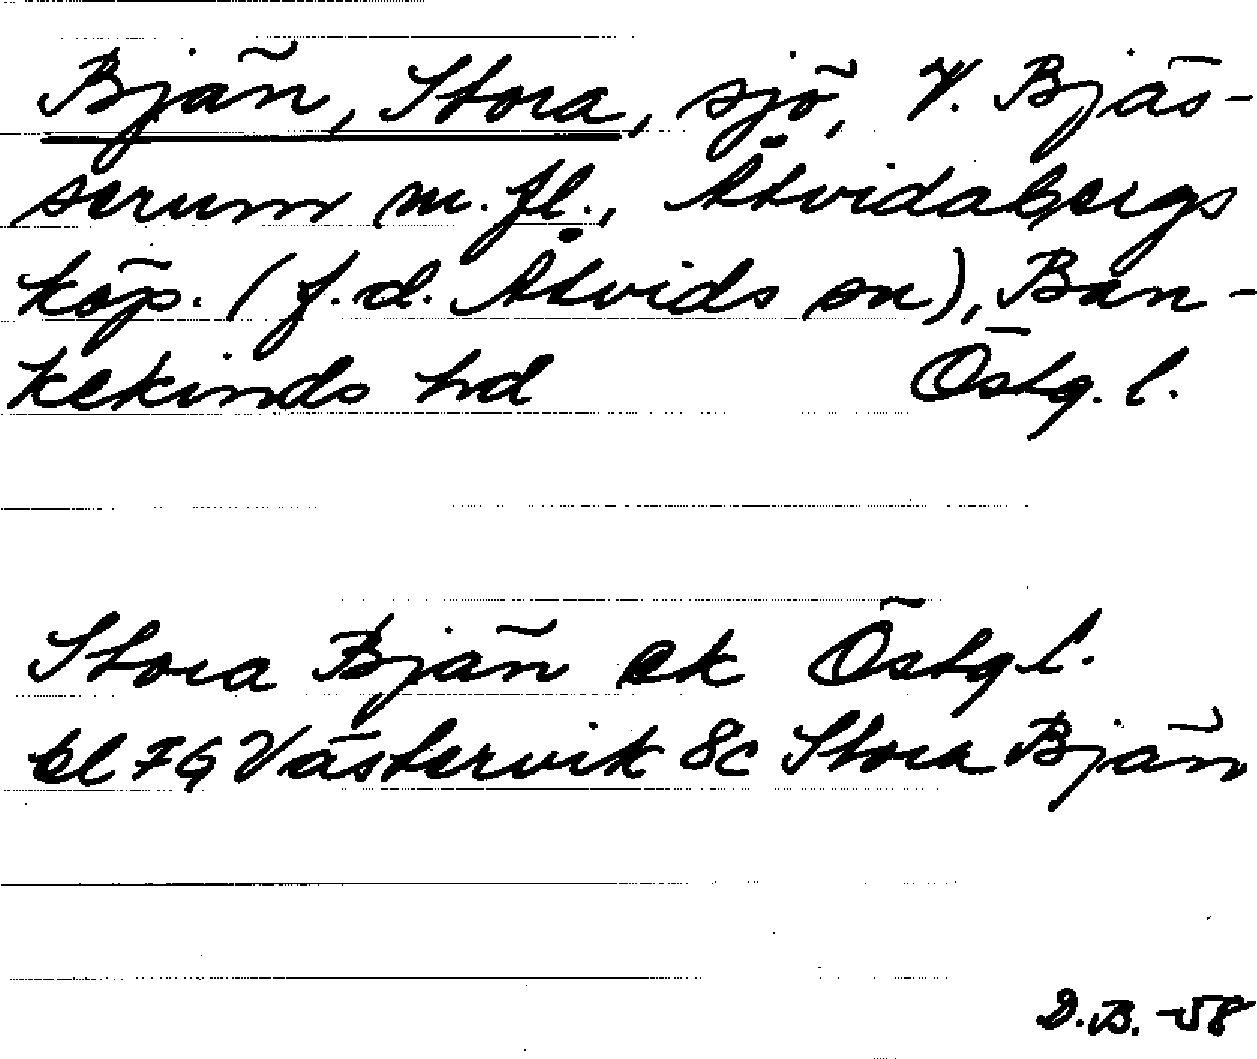 Bjän, Stora, sjö, V. Bjäs-
serum m. fl., Åtvidabergs
köp. (f.d. Åtvids sn), Ban-
kekinds hd Östg. l.
Stora Bjän ek Östg l.
bl 7G Västervik 8c Stora Bjän
D.B. -58